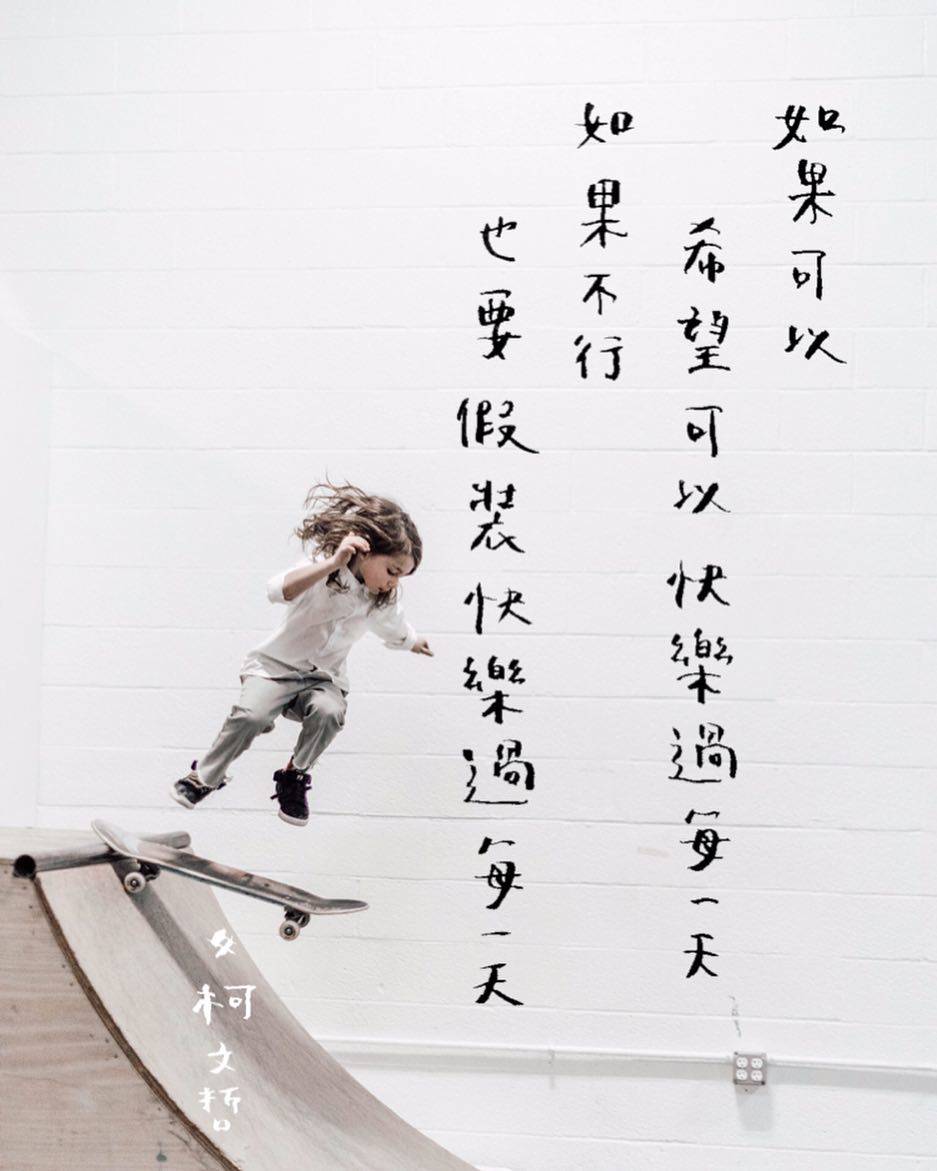 如果可以
希望可以快樂過每一天
如果不行
也要假裝快樂過每一天
文柯文哲